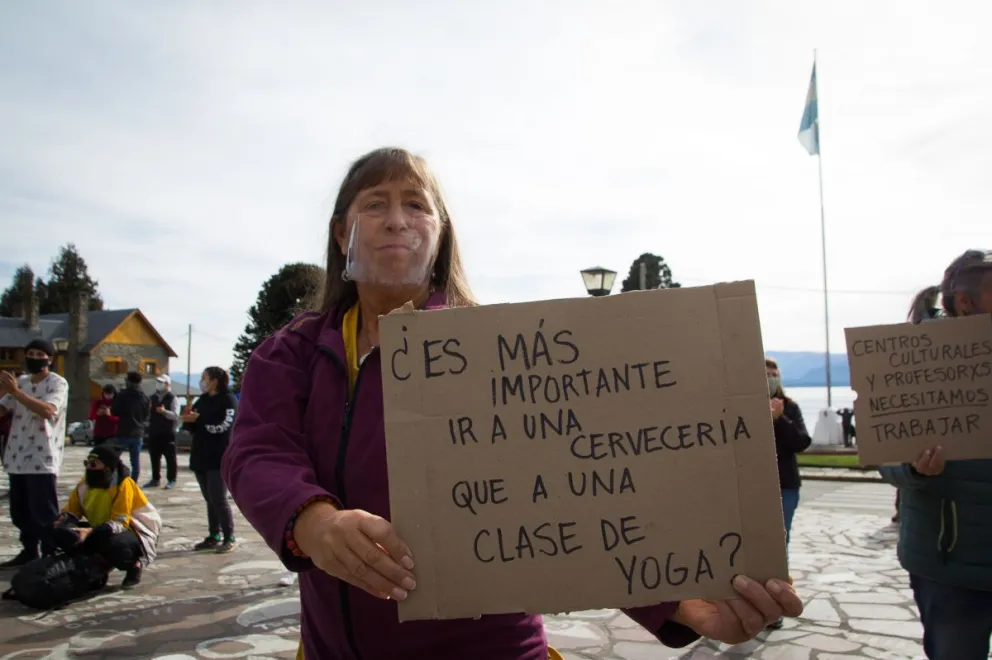 ¿ES MÁS
IMPORTANTE
IR A UNA
CERVECERÍA
QUE A UNA
CLASE DE
YOGA?
CENTROS
CULTURALES
Y PROFESORXS
NECESITAMOS
TRABAJAR